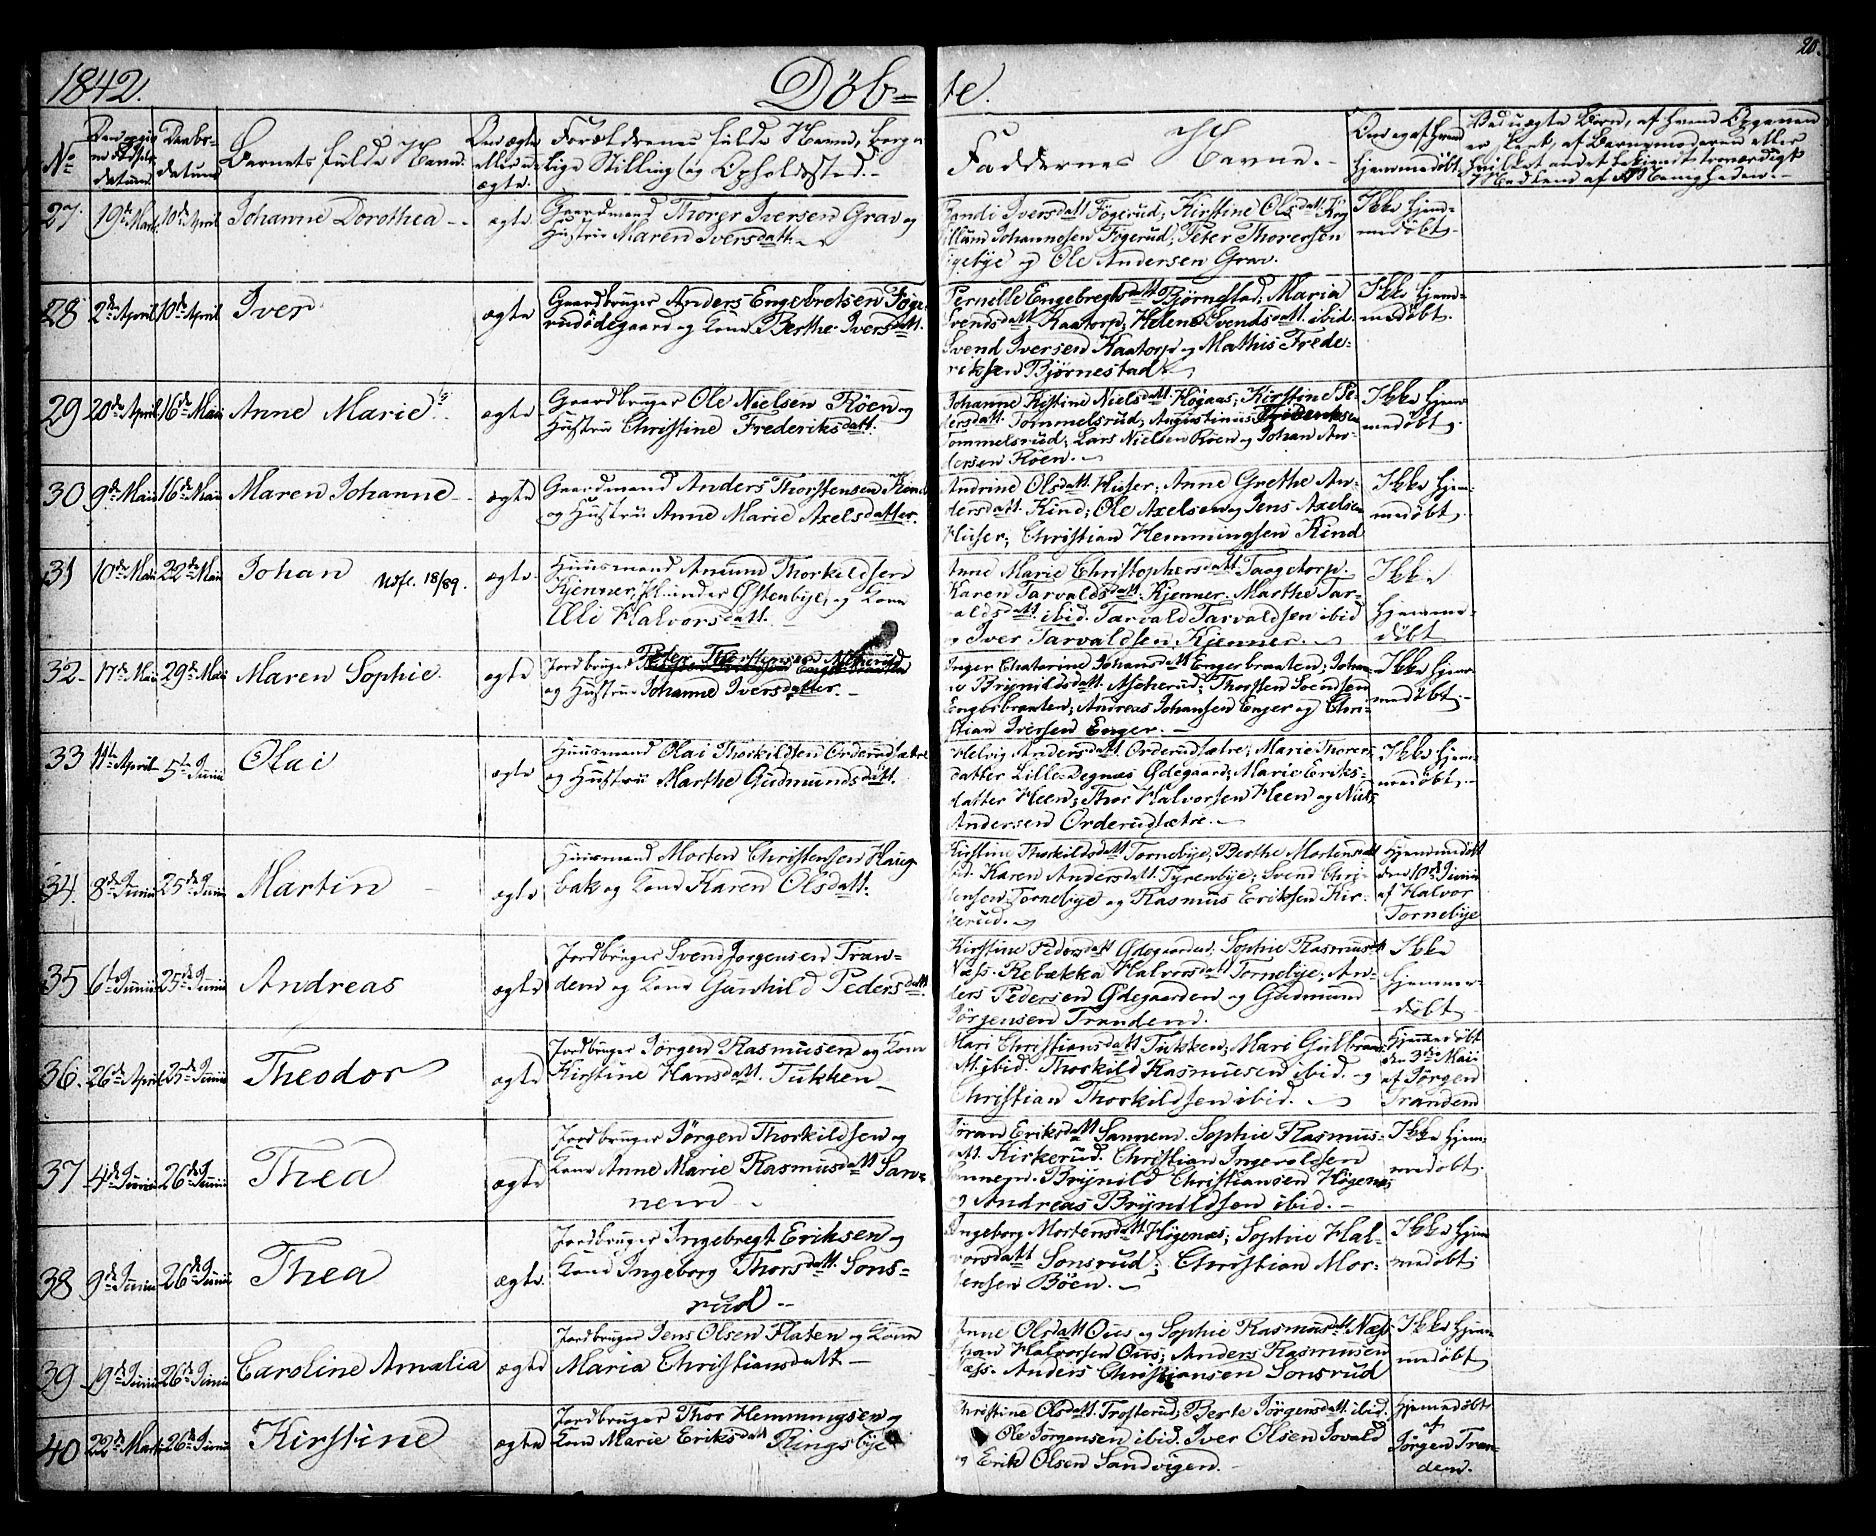 1842.
Døb=
te.
20.
No
datum
Barnets fulde Navn.
ægte.
Forældrenes fulde Navne, borger-
lige Stilling og Opholdssted.
Faddernes Navne.
hjemmedøbt.
27. 19de Marts 10de April Johanne Dorothea ægte
Gaardmand Thorer Iversen Grav og
Hustru Maren Iversdatt.
Randi Iversdatt Fögerud; Kirstine Olsdatt.
Johannesen Fögerud; Peter Thorersen
og Ole Andersen Grav.
Ikke hjem-
medøbt.
28 2de April 10de April Iver ægte
Gaardbruger Anders Engebretsen Föge-
rudödegaard og Kone Berthe Iversdatt.
Pernille Engebregtsdatt Björnstad; Maria
Svendsdatt. Kaatorp; Helene Svendsdatt. ibid.
Svend Iversen Kaatorp og Mathis Frede-
riksen Björnestad.
Ikke hjem-
medøbt.
29 20de April 16de Mai Anne Marie ægte
Gaardbruger Ole Nielsen Röen og
Hustru Christine Frederiksdatt.
Johanne Kistine Nielsdatt. Högaas; Kirstine Pe-
dersdatt. Tommelsrud; Augustinus Frideriksen
Tommelsrud; Lars Nielsen Röen og Johan An-
dersen Röen.
Ikke hjem-
medøbt.
30 9de Mai 16de Mai Maren Johanne ægte
Gaardmand Anders Thorstensen Kind
og Hustru Anne Marie Axelsdatter.
Andrine Olsdatt. Huser; Anne Grethe An-
dersdatt. Kind; Ole Axelsen og Jens Axelsen
Huser; Christian Hemmingsen Kind
Ikke hjem-
medøbt.
31 10de Mai 22de Mai Johan Udfl. 18/89. ægte
Huusmand Amund Thorkildsen
Kjenner, under Østenbye, og Kone
Elli Halvorsdatt.
Anne Marie Christophersdatt. Taagetorp.
Karen Tarvaldsdatt. Kjenner. Marthe Tar-
valdsdatt ibid. Tarvald Tarvaldsen ibid
og Iver Tarvaldsen Kjenner.
Ikke
hjemme-
døbt
32 17de Mai 29de Mai Maren Sophie. ægte
Jordbruger Peter Thorstensen
og Hustru Johanne Iversdatter.
Inger Chatarine Johansdatt Engerbraaten; Johan-
ne Brynildsdatt. Thorsten Svendsen
Engerbraaten; Andreas Johansen Enger og Chri-
stian Iversen Enger.
Ikke hjem-
medøbt.
33 11te April 5te Junii Olai ægte
Huusmand Olai Thorkildsen Orderudsætre
og Hustru Marthe Gudmundsdatt.
Helvig Andersdatt. Orderudsætre; Marie Thorers-
datter Lille-Degnæs Ødegaard; Marie Eriks-
datter Heen; Thor Halvorsen Heen og Niels
Andersen Orderudsætre.
Ikke hjem-
medøbt.
34. 8de Junii 25de Junii Martin ægte
Huusmand Morten Christensen Haug-
bak og Kone Karen Olsdatt.
Kirstine Thorkildsdatt Tornebye; Berthe Mortensdatt
ibid. Karen Andersdatt. Tyrenbye; Svend Chri-
stensen Tornebye og Rasmus Eriksen Kir-
kerud.
Hjemmedøbt
den 10de Junii
af Halvor
Tornebye
35 6te Junii 25de Junii Andreas ægte
Jordbruger Svend Jørgensen Tran-
dem og Kone Gunhild Pedersdatt
Kirstine Pedersdatt Ødegaarden; Sophie Rasmusdt
Næss. Rebekka Halvorsdatt Tornebye; An-
ders Pedersen Ødegaarden og Gudmund
Jörgensen Trandem.
Ikke
hjemme-
døbt
36. 26de April 25de Junii Theodor ægte
Jordbruger Jörgen Rasmusen og Kone
Kirstine Hansdatt. Tukken
Mari Christiansdatt Tukken; Mari Gulbrands-
dtt. ibid. Thorkild Rasmusen ibid. og
Christian Thorkildsen ibid.
Hjemmedøbt
den 3die Mai
af Jörgen
Trandem
37 4de Junii 26de Junii Thea ægte
Jordbruger Jörgen Thorkildsen og
Kone Anne Marie Rasmusdatt San-
nem
Jöran Eriksdatt Sannem. Sophie Rasmus-
datt. Kirkerud. Christian Ingevoldsen
Sannem. Brynild Christiansen Högenæs
og Andreas Brynildsen ibid.
Ikke hjem-
medøbt.
38 9de Junii 26de Junii Thea ægte.
Jordbruger Ingebregt Eriksen og
Kone Ingeborg Thorsdatt. Sons-
rud
Ingeborg Mortensdatt. Högenæs; Sophie Hal-
vorsdatt Sonsrud; Christian Mor-
tensen Böen.
Ikke hjem-
medøbt.
39 19de Junii 26de Junii Caroline Amalia ægte
Jordbruger Jens Olsen Flaten og Kone
Maria Christiansdatt
Anne Olsdatt Ous og Sophie Rasmusdatt Næss
Johan Halvorsen Ous; Anders Rasmusen
Næss. Anders Christiansen Sonsrud
Ikke hjem-
medøbt
40 22de Marts 26de Junii Kirstine ægte
Jordbruger Thor Hemmingsen og
Kone Marie Eriksdatt Ringsbye
Christine Olsdatt. Trosterud; Berte Jörgensdatt. ibid.
Ole Jörgensen ibid. Iver Olsen Jovald
og Erik Olsen Sandvigen.
Hjemmedøbt
af
Jörgen Tran-
dem.